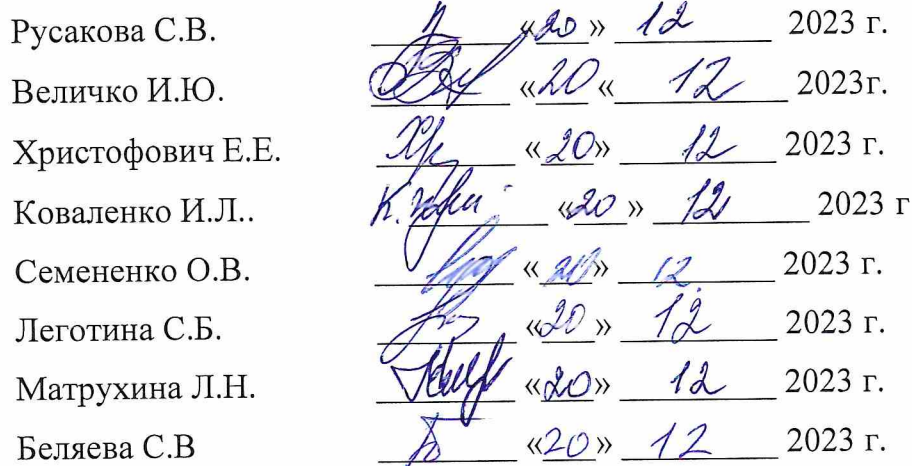 Русакова С.В. «20» 12 2023 г.
Величко И.Ю. «20 « 12 2023г.
Христофович Е.Е. «20» 12 2023 г.
Коваленко И.Л.. «20 » 12 2023 г
Семененко О.В. «20» 12. 2023 г.
Леготина С.Б. «20» 12 2023 г.
Матрухина Л.Н. «20» 12 2023 г.
Беляева С.В «20» 12 2023 г.